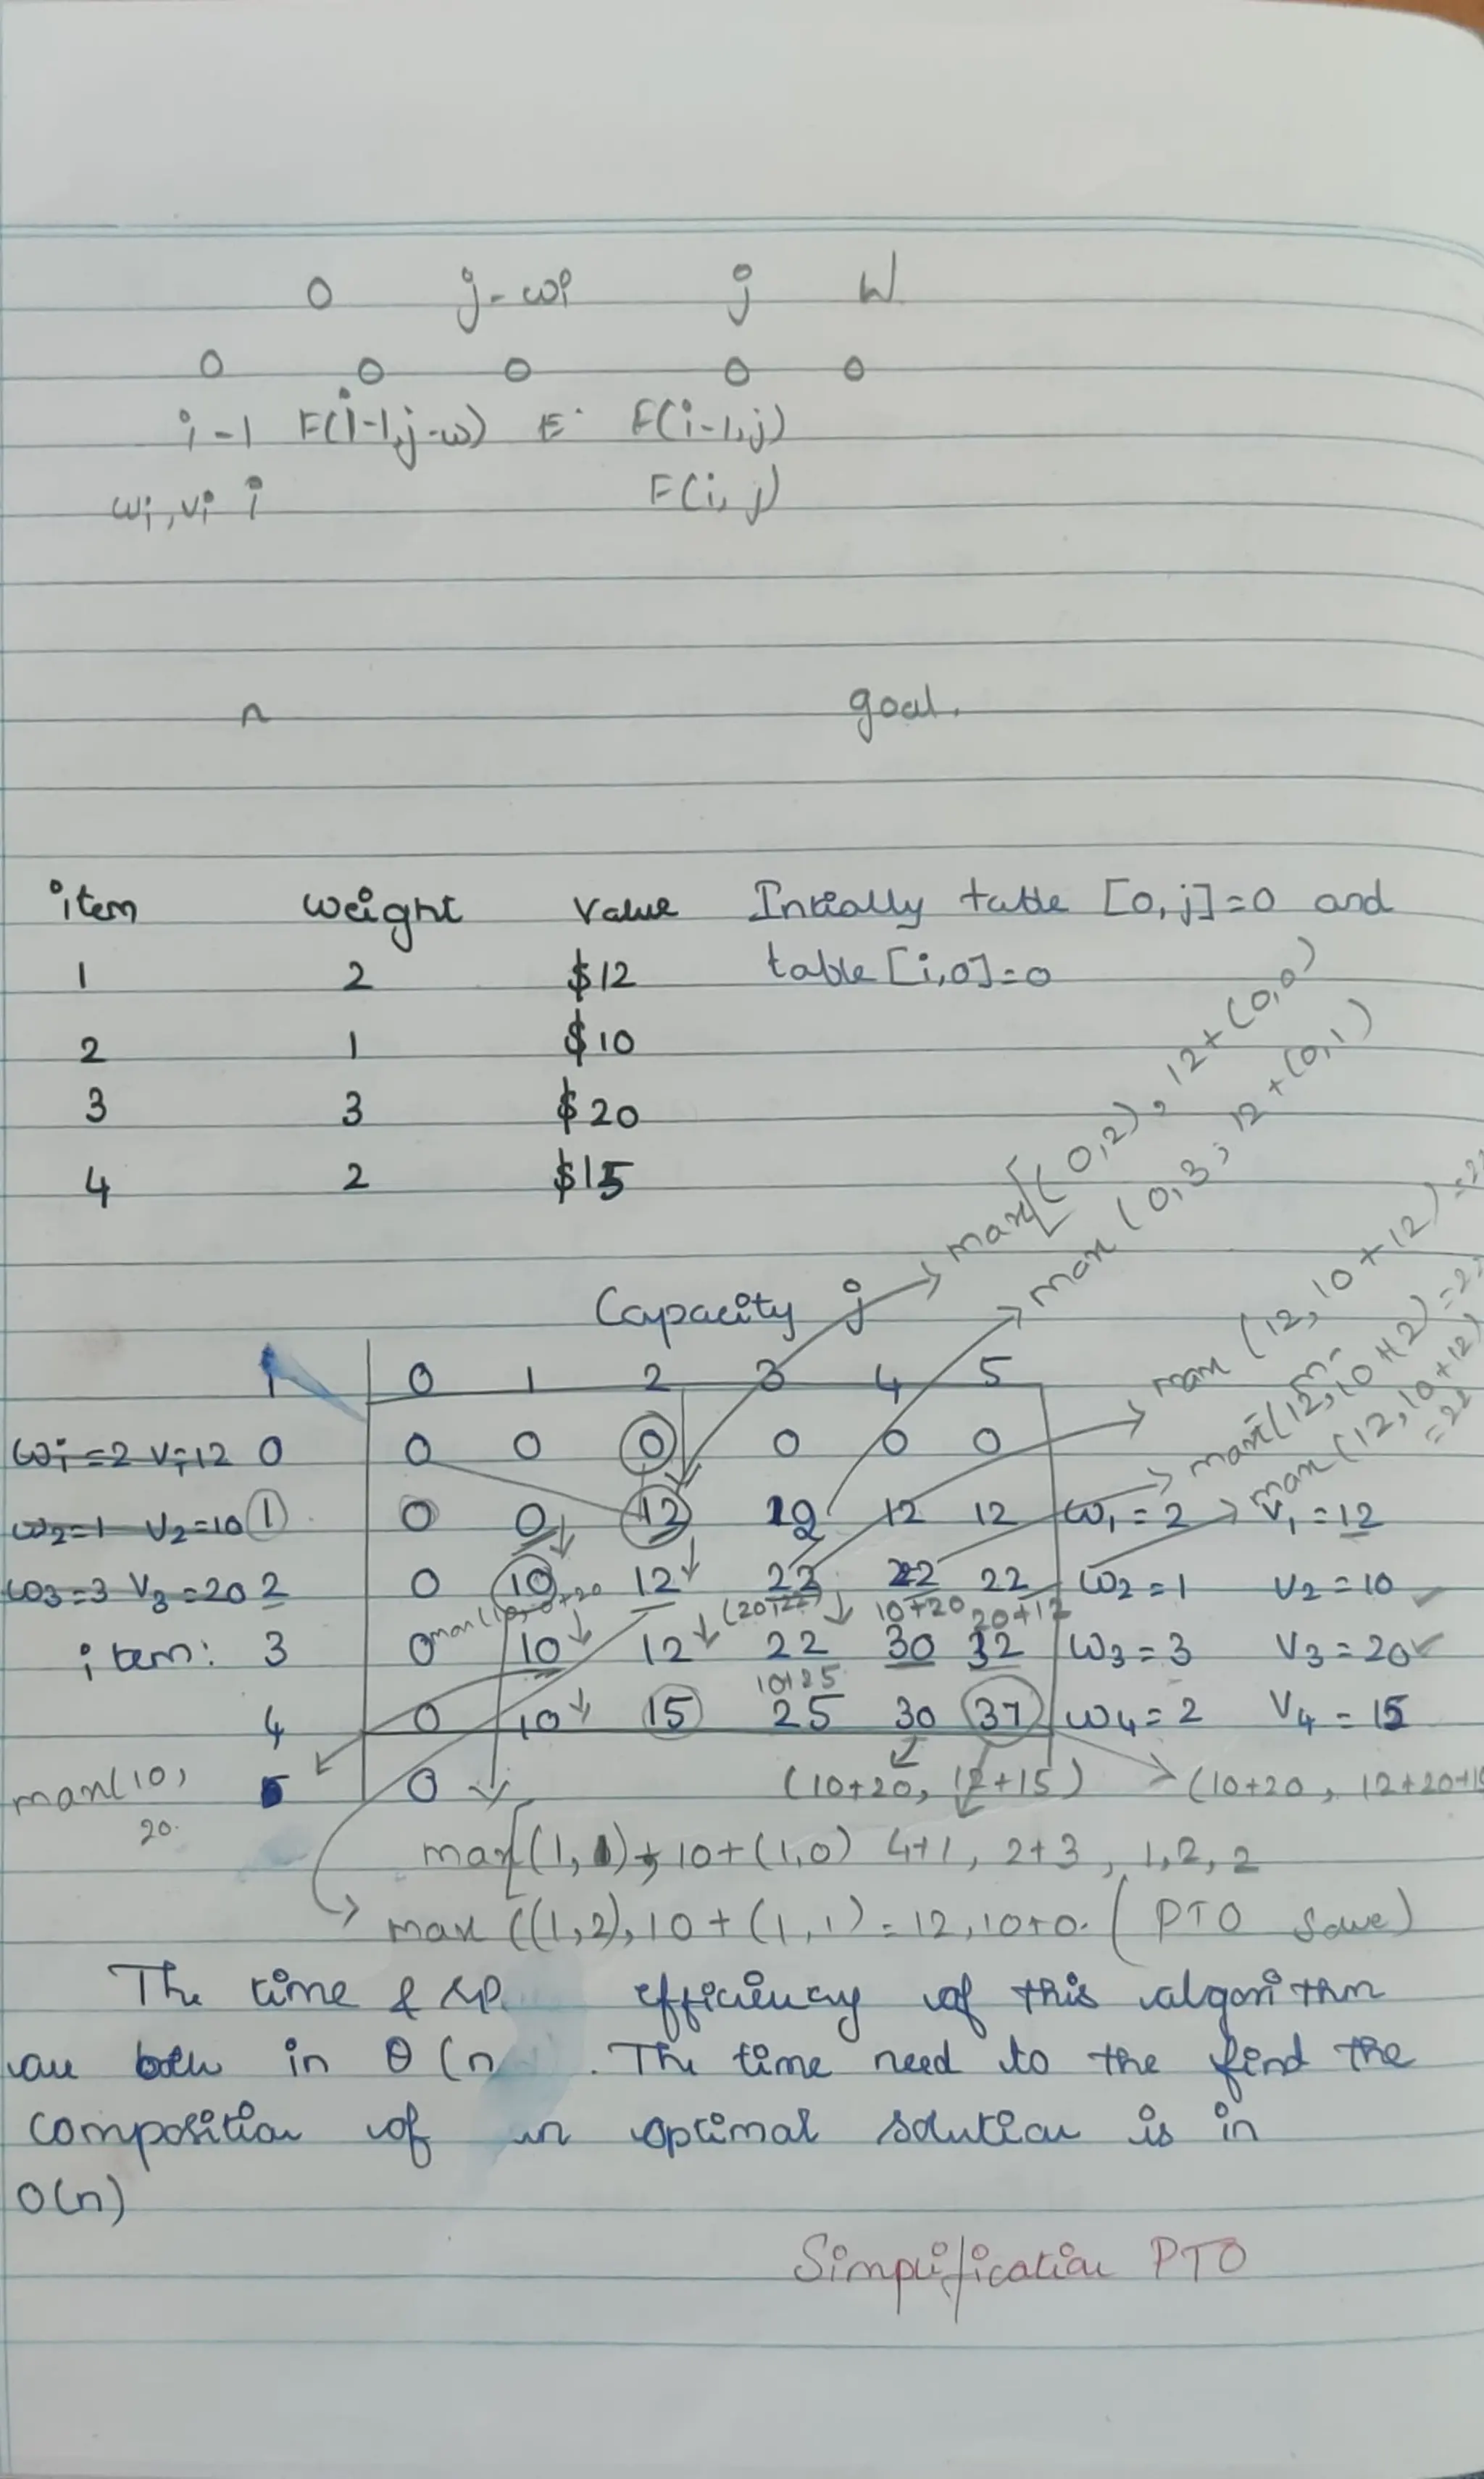 0 j-wi j W
0 0 0 0 0
i-1 F(i-1,j-w) F(i-1,j)
wi,vi i F(i,j)
n goal.
item weight value Intially table [0,j]=0 and
1 2 $12 table [i,0]=0
2 1 $10
3 3 $20
4 2 $15
max[(0,2), 12+(0,0)
max (0,3, 12+(0,1)
max (12, 10+12)
max(12,10+12)
max (12,10+12)
=22
Capacity j
i 0 1 2 3 4 5
wi=2 vi=12 0 0 0 0 0 0 0
w2=1 v2=10 1 0 0 12 12 12 12 w1=2 v1=12
w3=3 v3=20 2 0 10 12 22 22 22 w2=1 v2=10
10+20 20+12
item: 3 0 10 12 22 30 32 w3=3 v3=20
4 0 10 15 25 30 37 w4=2 v4=15
max(10, 5 0 (10+20, 12+15) (10+20, 12+20+
20.
max[(1,1), 10+(1,0) 4+1, 2+3, 1,2,2
max ((1,2),10+(1,1)=12,10+0. (PTO
The time & sp efficiency of this algorithm
are both in θ(n . The time need to the find the
composition of an optimal solution is in
O(n)
Simplification PTO